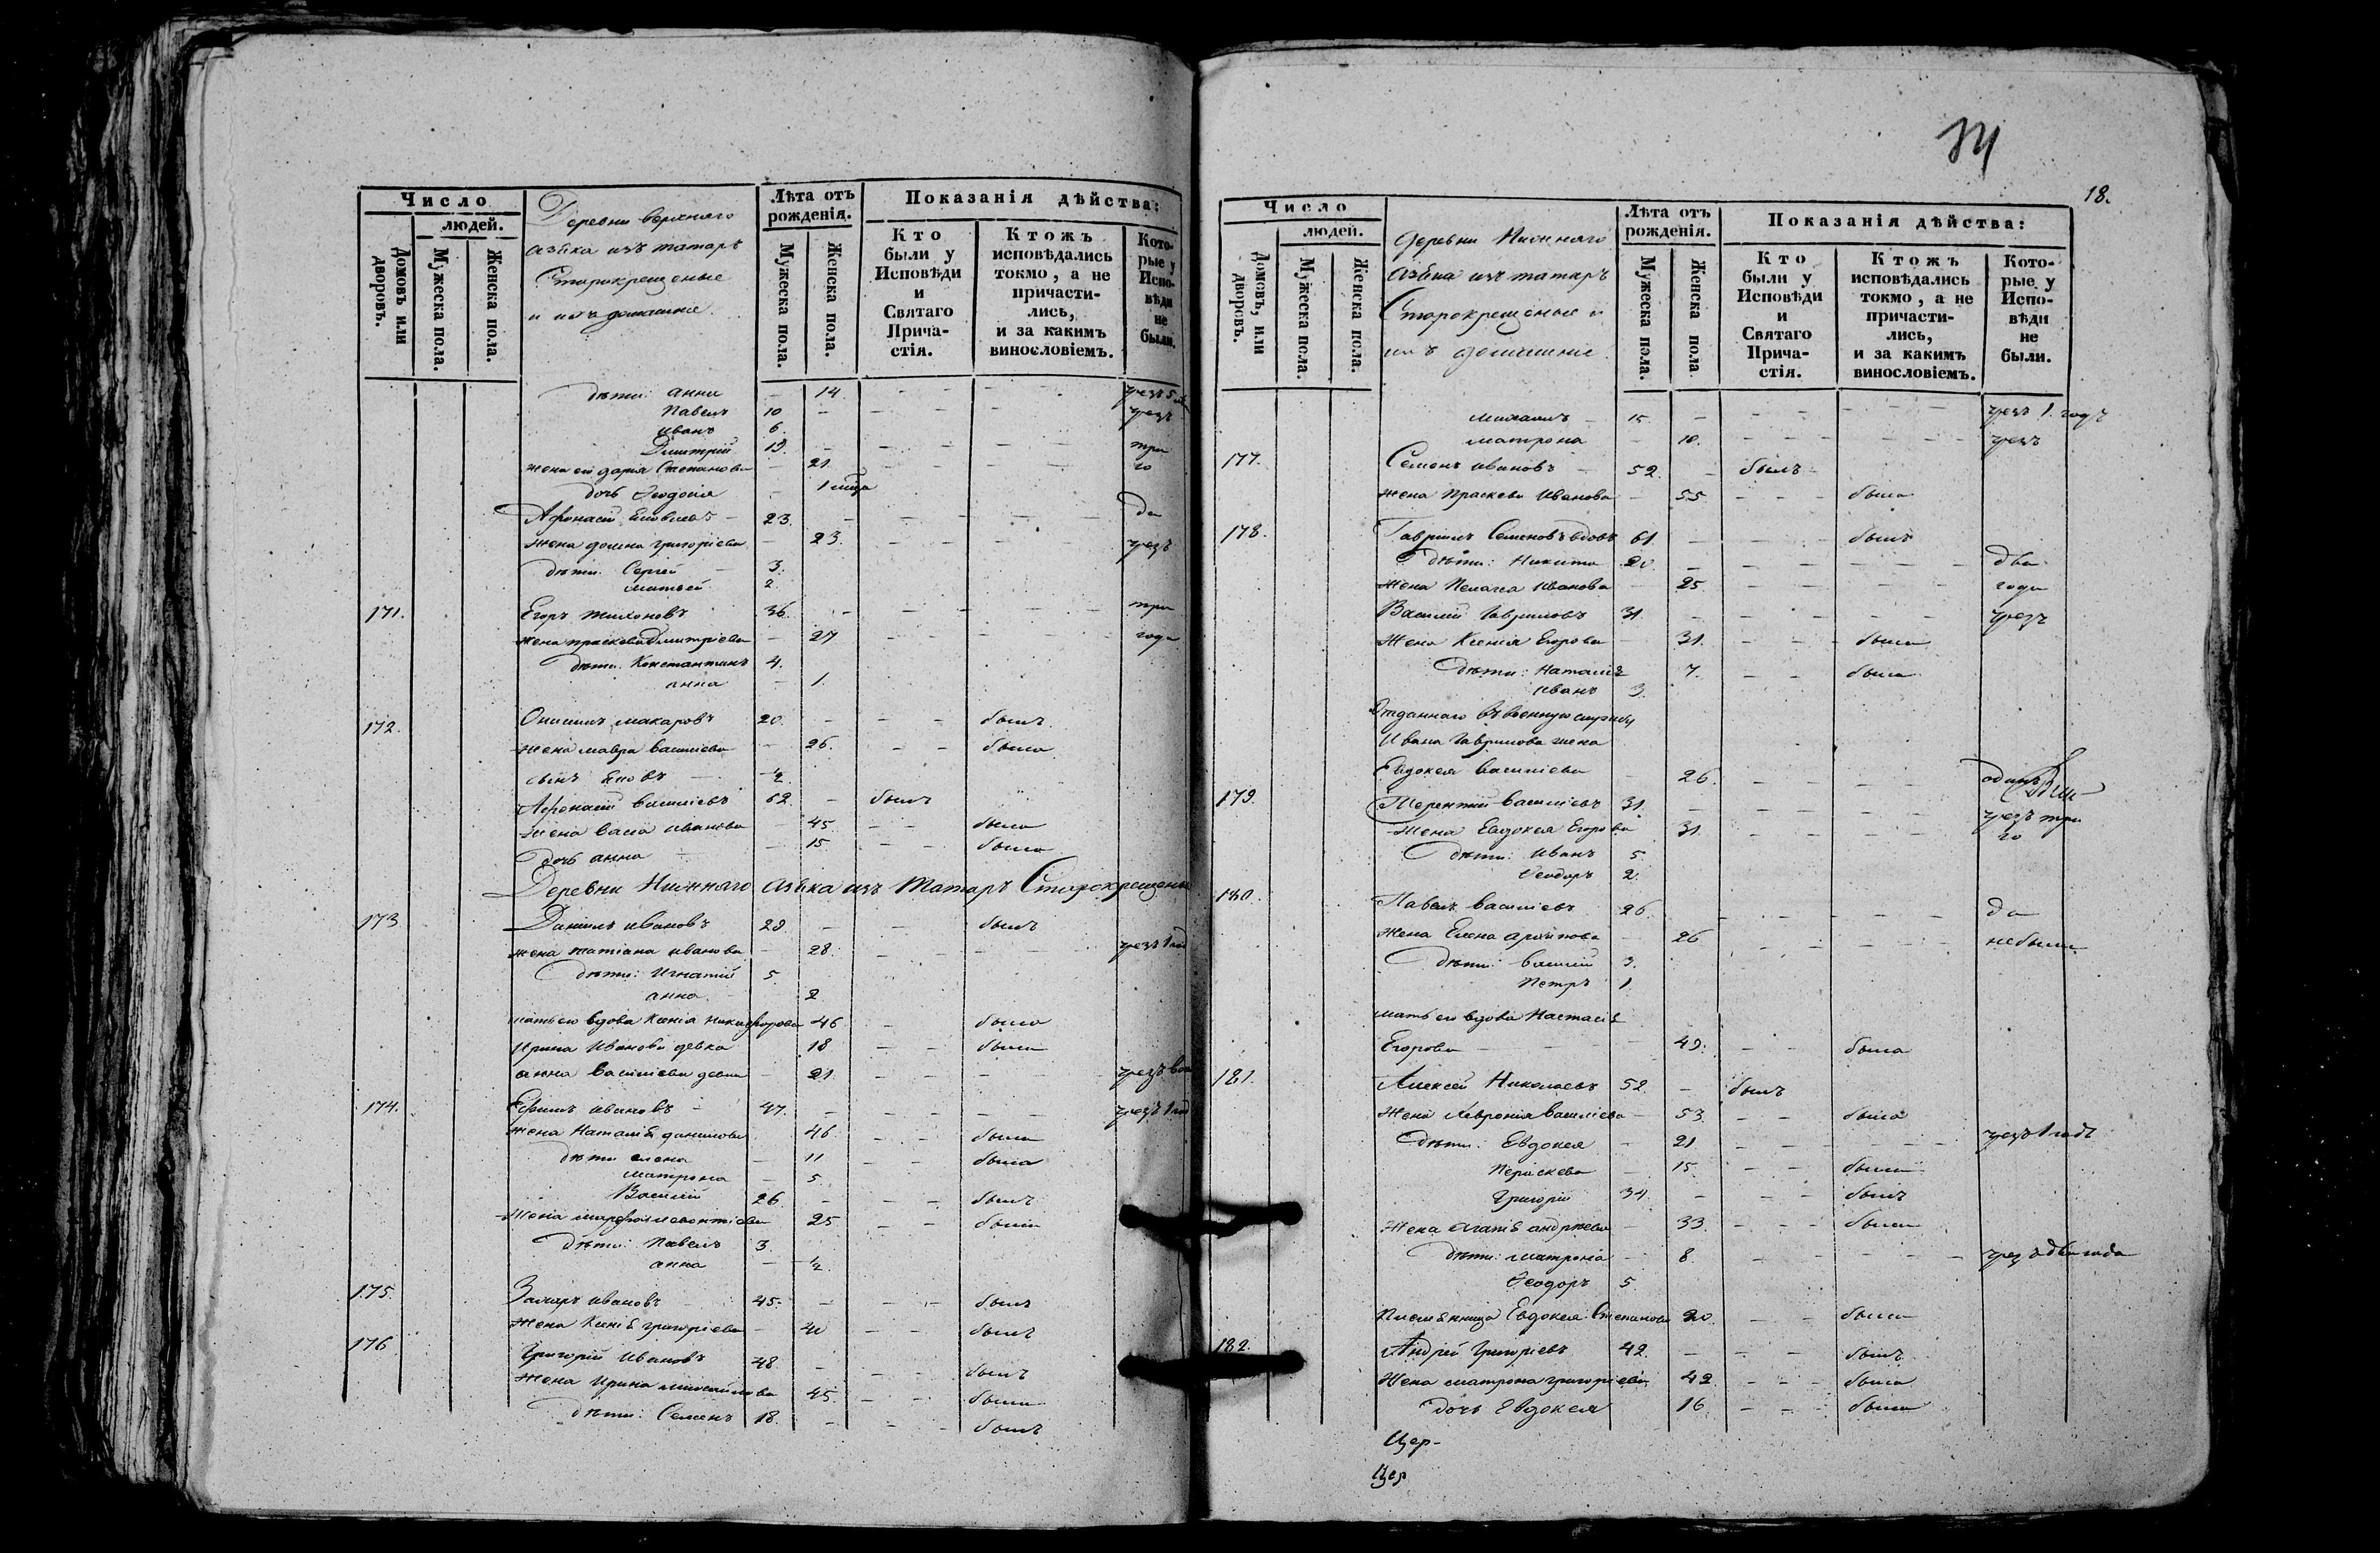 Число
людей.
Домовъ или дворовъ.
Мужеска пола.
Женска пола.
Деревни верхняго
азяка изъ татаръ
Старокрещеные
и ихъ домашніе.
Лѣта отъ рожденія.
Мужеска пола.
Женска пола.
Показанія дѣйства:
Кто были у Исповѣди и Святаго Прича- стія.
Ктожъ исповѣдались токмо, а не причасти- лись, и за какимъ винословіемъ.
Кото- рые у Испо- вѣди не были.
дѣти: анна 14 чрезъ 5
Павелъ 10 чрезъ
иванъ 6.
Димитрій 19. три
жена ей дарія Степанова 21 го
дочь Ѳеодосія 1 мѣца
Афонасій 23. да
жена григоріева 23. чрезъ
дѣти: Сергей 3.
матвей 2
171. Егоръ тихоновъ 36. три
жена прасковія Димитріева 27 года
дѣти: Константинъ 4.
анна 1.
172. Онисимъ макаровъ 20. былъ
жена мавра василіева 26. была
сынъ Яковъ ½
Афонасій василіевъ 62. былъ
жена васса иванова 45. была
дочь анна 15 была
Деревни Нижняго Азяка изъ Татаръ Старокрещеные
173 Даніилъ ивановъ 29. былъ
жена татіана иванова 28. чрезъ 1 год
дѣти: Игнатій 5.
анна. 2
мать его вдова Ксенія никифорова 46 была
Ирина Иванова девка 18 была
анна василіева девка 21.
174. Ефимъ ивановъ 47. чрезъ 1 год
жена Наталія данилова 46 была
дѣти елена 11 была
матрона 5
Василій 26 былъ
Жена марфа леонтіева 25 была
дѣти: Павелъ 3.
анна ½
175. Захаръ ивановъ 45. былъ
жена Ксенія григоріева 40 былъ
176 Григорій Ивановъ 48. былъ
жена Ирина михайлова 45. была
дѣти: Семенъ 18. былъ
18.
Число
людей.
Домовъ, или дворовъ.
Мужеска пола.
Женска пола.
деревни Нижняго
азяка изъ татаръ
Старокрещеные и
ихъ домашніе.
Лѣта отъ рожденія.
Мужеска пола.
Женска пола
Показанія дѣйства:
Кто были у Исповѣди и Святаго Прича- стія.
Ктожъ исповѣдались токмо, а не причасти- лись, и за какимъ винословіемъ.
Кото- рые у Испо- вѣди не были.
михаилъ 15 чрезъ 1. годъ
матрона 10. чрезъ
177. Семенъ ивановъ 52. былъ
жена праскева Иванова 55 была
178. Гавріилъ Семеновъ вдовъ 61. былъ
дѣти: Никита 20 два
жена Пелагея Иванова 25 года
Василій Гавриловъ 31. чрезъ
жена Ксенія Егорова 31. была
дѣти: Наталія 7. была
иванъ 3.
Отданнаго въ военную службу
Ивана Гаврилова жена
Евдокея василіева 26.
179. Терентій василіевъ 31. чрезъ три
жена Евдокея Егорова 31. го
дѣти: Иванъ 5
Ѳеодоръ 2.
180. Павелъ василіевъ 26. да
жена Елена архипова 26 небыли
дѣти: василій 3.
Петръ 1.
мать его вдова Настасія
Егорова 49. была
181. Алексей Николаевъ 52. былъ
жена Хаврония василіева 53. была
дѣти: Евдокея 21. чрезъ 1 годъ
Параскева 15. была
Григорій 34. былъ
жена агапія андрѣева 33. была
дѣти: матрона 8. чрезъ два года
Ѳеодоръ 5.
Племянница Евдокея Степанова 20 была
182. Андрей Григоріевъ 42. былъ
жена матрона григоріева 42 была
дочь Евдокея 16 была
Цер-
Цер